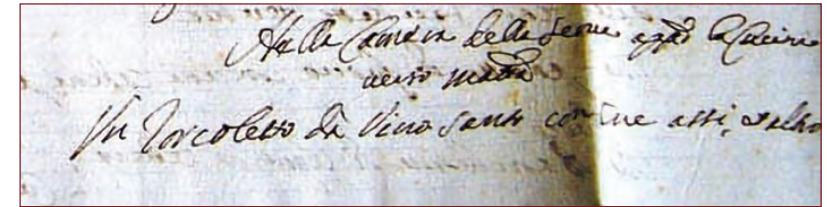 Nella Camera delle Serve app.o la Cucina
verso matt.a
Un Torcoletto da Vino Santo con sue assi, et altro